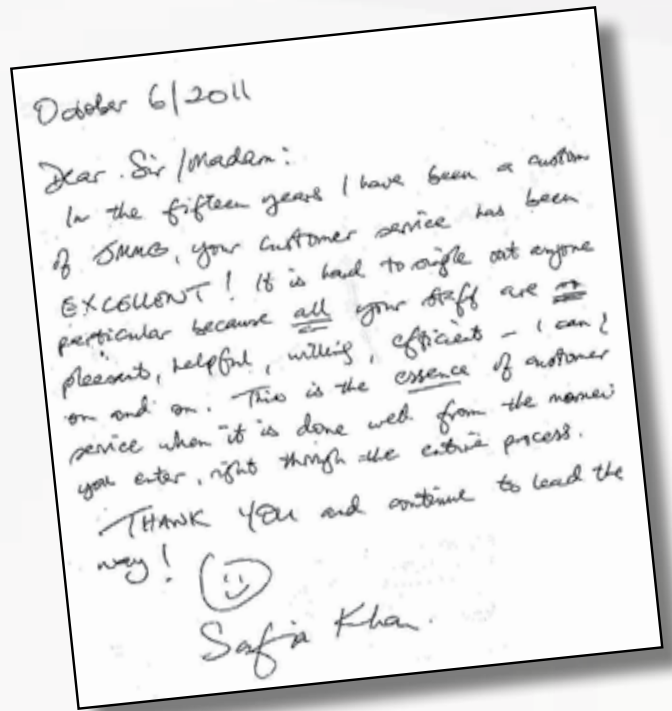 October 6/2011
Dear Sir/Madam:
In the fifteen years I have been a custom
of JMMB, your customer service has been
EXCELLENT! It is hard to single out anyone
particular because all your staff are so
pleasant, helpful, willing, efficient - I can
on and on. This is the essence of customer
service when it is done well from the
you enter, right through the entire process.
THANK YOU and continue to lead the
way!
Safia Khan.